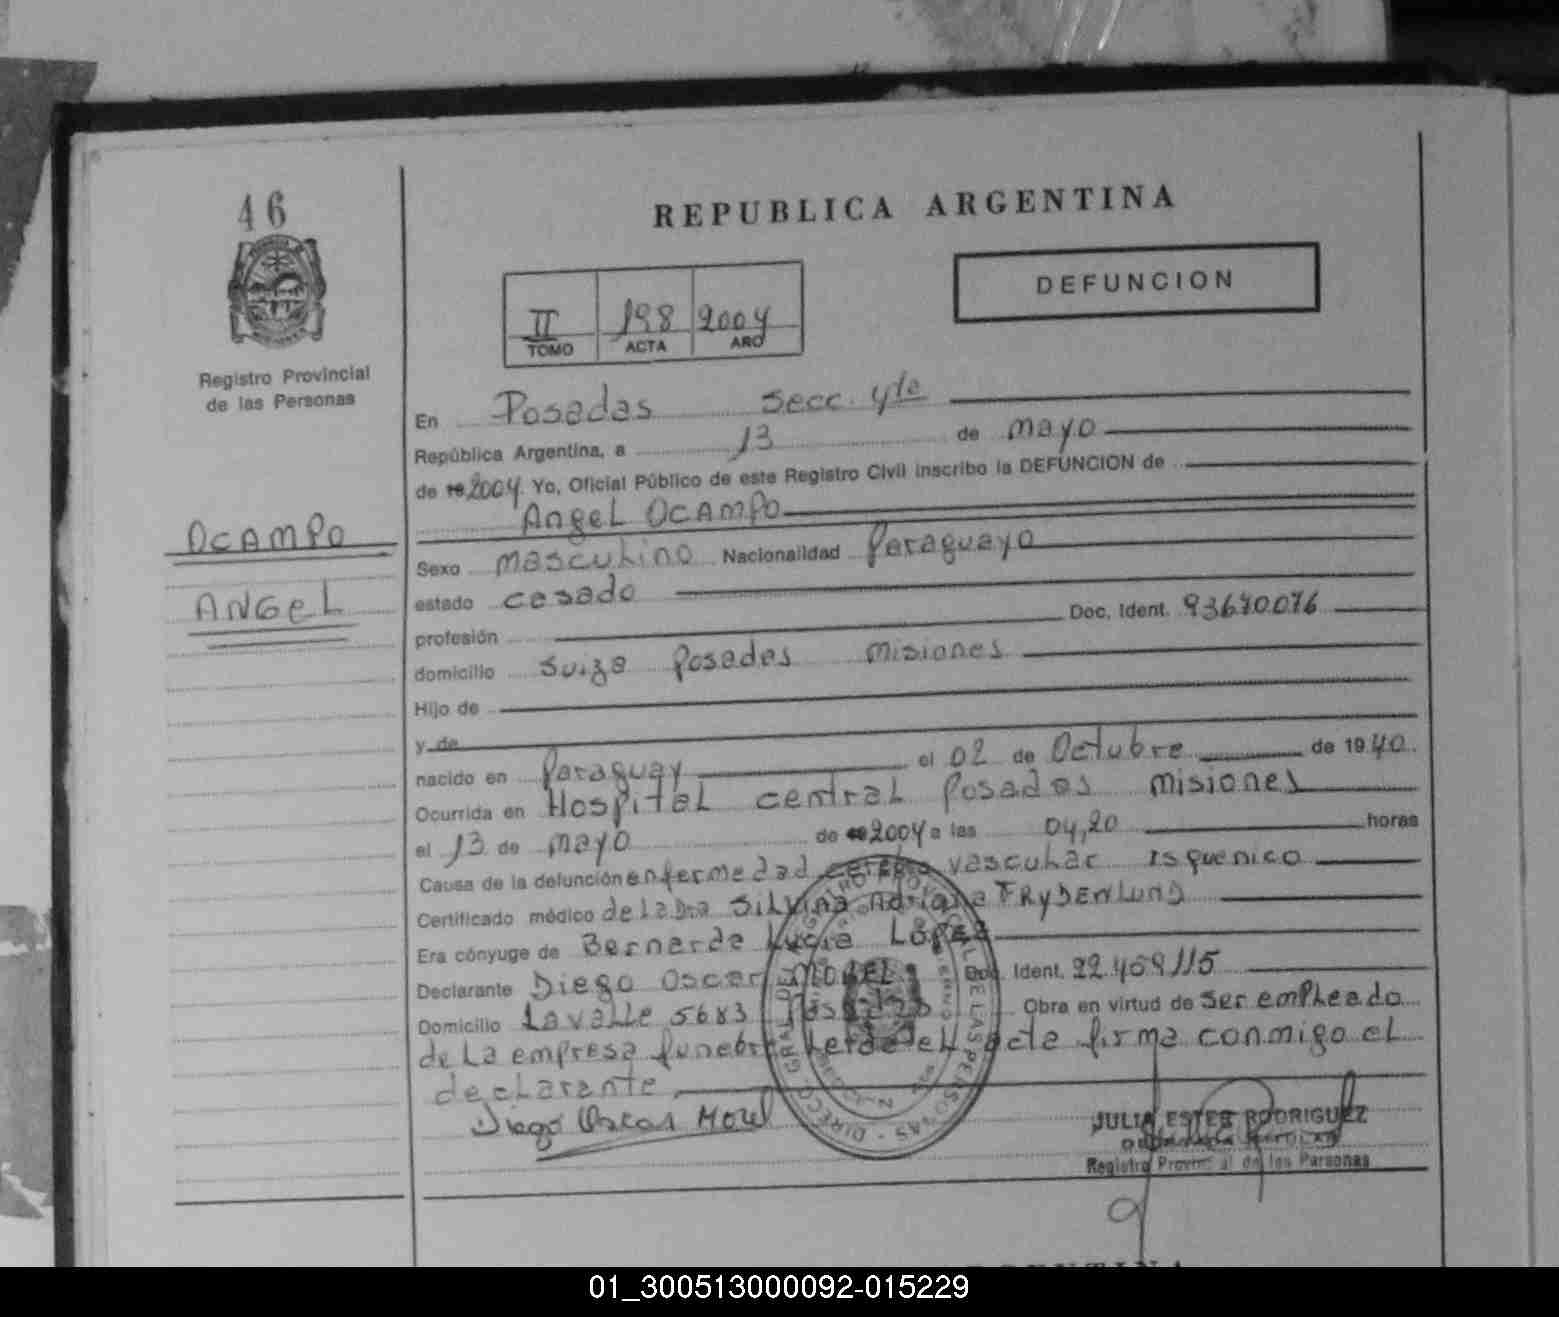 46
REPUBLICA ARGENTINA
DEFUNCION
II 198 2004
TOMO ACTA AÑO
Registro Provincial
de las Personas
En Posadas Secc. 4ta
República Argentina, a 13 de mayo
de 19 2004. Yo, Oficial Público de este Registro Civil inscribo la DEFUNCION de
Angel Ocampo
OCAMPO
ANGEL
Sexo masculino Nacionalidad Paraguayo
estado casado
profesión Doc. Ident. 93670076
domicilio Suiza Posadas misiones
Hijo de
y de
nacido en Paraguay el 02 de Octubre de 1940.
Ocurrida en Hospital central Posadas misiones
el 13 de mayo de 19 2004 a las 04,20 horas
Causa de la defunción enfermedad cerebro vascular isquenico
Certificado médico de la Dra Silvina Adriana FRYDENLUND
Era cónyuge de Bernarda Lucia López
Declarante Diego Oscar MOREL Doc. Ident. 22.459115
Domicilio Lavalle 5683 Posadas Obra en virtud de ser empleado
de la empresa funebre Leida el acta firma conmigo el
declarante
Diego Oscar Morel
JULIA ESTER RODRIGUEZ
Registro Provincial de las Personas
01_300513000092-015229